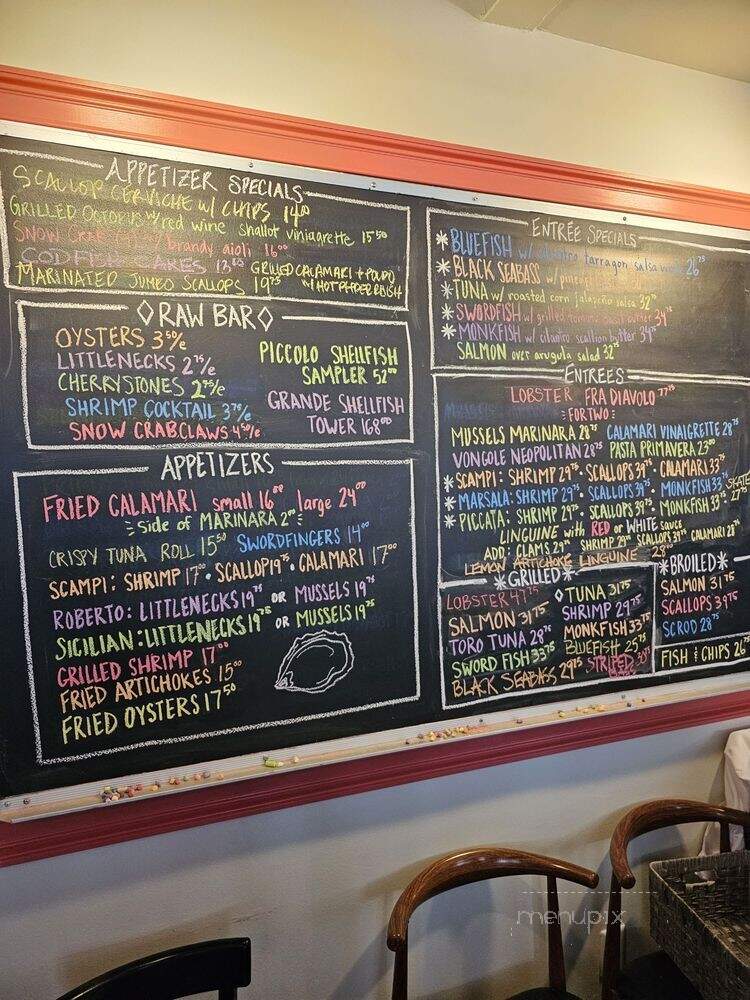 APPETIZER SPECIALS
SCALLOP CERVICHE W/ CHIPS 14⁰⁰
GRILLED OCTOPUS w/ red wine shallot viniagrette 15⁵⁰
SNOW CRAB brandy aioli 16⁰⁰
CODFISH CAKES
MARINATED JUMBO SCALLOPS 19⁷⁵
GRILLED CALAMARI +
W/HOT PEPPER RELISH
◊RAW BAR◊
OYSTERS 3⁵⁰/e
LITTLENECKS 2⁷⁵/e
CHERRYSTONES 2⁷⁵/e
SHRIMP COCKTAIL 3⁷⁵/e
SNOW CRABCLAWS 4⁵⁰/e
PICCOLO SHELLFISH
SAMPLER 52⁰⁰
GRANDE SHELLFISH
TOWER 168⁰⁰
APPETIZERS
FRIED CALAMARI small 16⁰⁰ large 24⁰⁰
side of MARINARA 2⁰⁰
CRISPY TUNA ROLL 15⁵⁰ SWORDFINGERS 14⁰⁰
SCAMPI: SHRIMP 17⁰⁰ • SCALLOP 19⁷⁵ • CALAMARI 17⁰⁰
ROBERTO: LITTLENECKS 19⁷⁵ OR MUSSELS 19⁷⁵
SICILIAN: LITTLENECKS 19⁷⁵ OR MUSSELS 19⁷⁵
GRILLED SHRIMP 17⁰⁰
FRIED ARTICHOKES 15⁰⁰
FRIED OYSTERS 17⁵⁰
ENTRÉE SPECIALS
*BLUEFISH w/ cilantro tarragon salsa 26⁷⁵
*BLACK SEABASS w/ pineapple
*TUNA w/ roasted corn jalapeño salsa 32
*SWORDFISH w/ grilled butter 34⁷⁵
*MONKFISH w/ cilantro scallion butter 34⁷⁵
SALMON over arugula salad 32
ENTRÉES
LOBSTER FRA DIAVOLO 77⁷⁵
FOR TWO
MUSSELS MARINARA 28⁷⁵ CALAMARI VINAIGRETTE 28⁷⁵
VONGOLE NEOPOLITAN 28⁷⁵ PASTA PRIMAVERA 23⁰⁰
*SCAMPI: SHRIMP 29⁷⁵ • SCALLOPS 39⁷⁵ • CALAMARI 33⁷⁵
*MARSALA: SHRIMP 29⁷⁵ • SCALLOPS 39⁷⁵ • MONKFISH 33⁷⁵ SKATE
*PICCATA: SHRIMP 29⁷⁵ • SCALLOPS 39⁷⁵ • MONKFISH 33⁷⁵ 27⁷⁵
LINGUINE with RED or WHITE sauce
ADD: CLAMS 29⁷⁵ SHRIMP 29⁷⁵ SCALLOPS 39⁷⁵ CALAMARI 28⁷⁵
LEMON ARTICHOKE LINGUINE 28⁰⁰
*GRILLED*
LOBSTER 47⁷⁵
SALMON 31⁷⁵
TORO TUNA 28⁷⁵
SWORD FISH 33⁷⁵
BLACK SEABASS 29⁷⁵
◊TUNA 31⁷⁵
SHRIMP 29⁷⁵
MONKFISH 33⁷⁵
BLUEFISH 25⁷⁵
STRIPED
*BROILED*
SALMON 31⁷⁵
SCALLOPS 39⁷⁵
SCROD 28⁷⁵
FISH & CHIPS 26
menupix